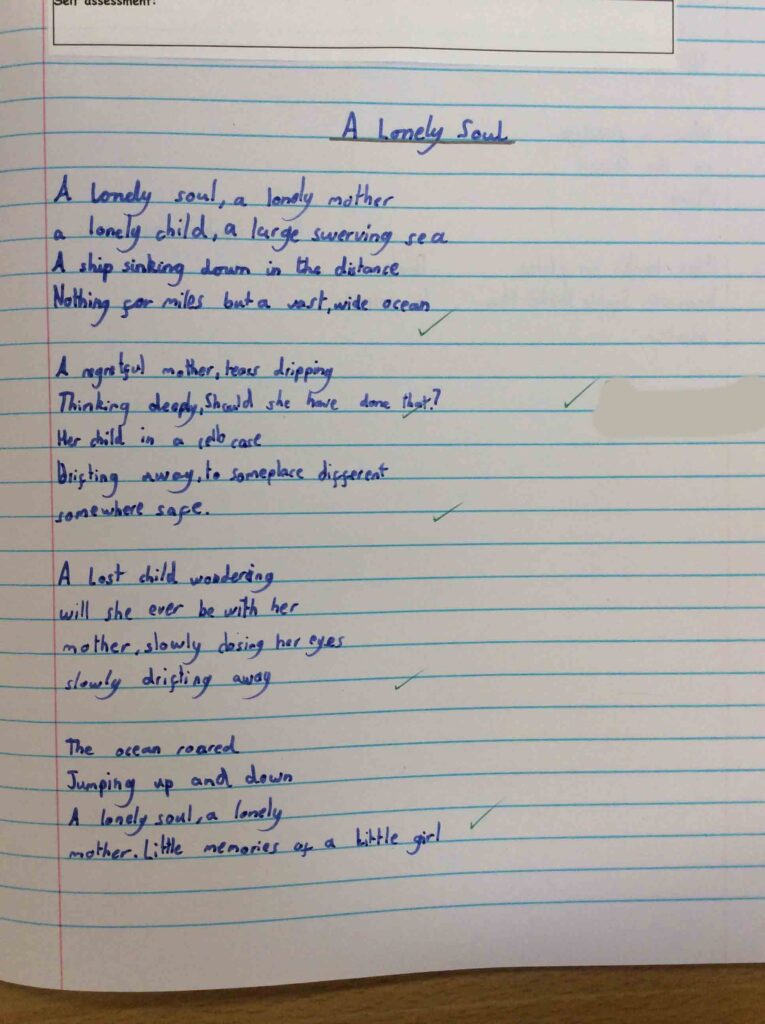 Self assessment:
A Lonely Soul
A lonely soul, a lonely mother
a lonely child, a large swerving sea
A ship sinking down in the distance
Nothing for miles but a vast, wide ocean
A regretful mother, tears dripping
Thinking deeply, Should she have done that?
Her child in a cello case
Drifting away, to someplace different
somewhere safe.
A Lost child wondering
will she ever be with her
mother, slowly closing her eyes
slowly drifting away
The ocean roared
Jumping up and down
A lonely soul, a lonely
mother. Little memories of a little girl